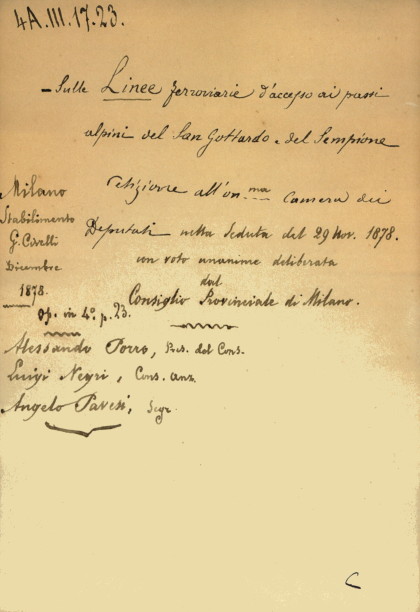 4A.III.17.23.
- Sulle Linee ferroviarie d'accesso ai passi
alpini del San Gottardo e del Sempione
Petizione all'on.ma Camera dei
Deputati nella seduta del 29 Nov. 1878.
con voto unanime deliberata
dal
Consiglio Provinciale di Milano.
Milano
Stabilimento
G. Civelli
Dicembre
1878.
Op. in 4º. p. 23.
Alessandro Porro, Pres. del Cons.
Luigi Negri, Cons. anz.
Angelo Pavesi, Segr.
C